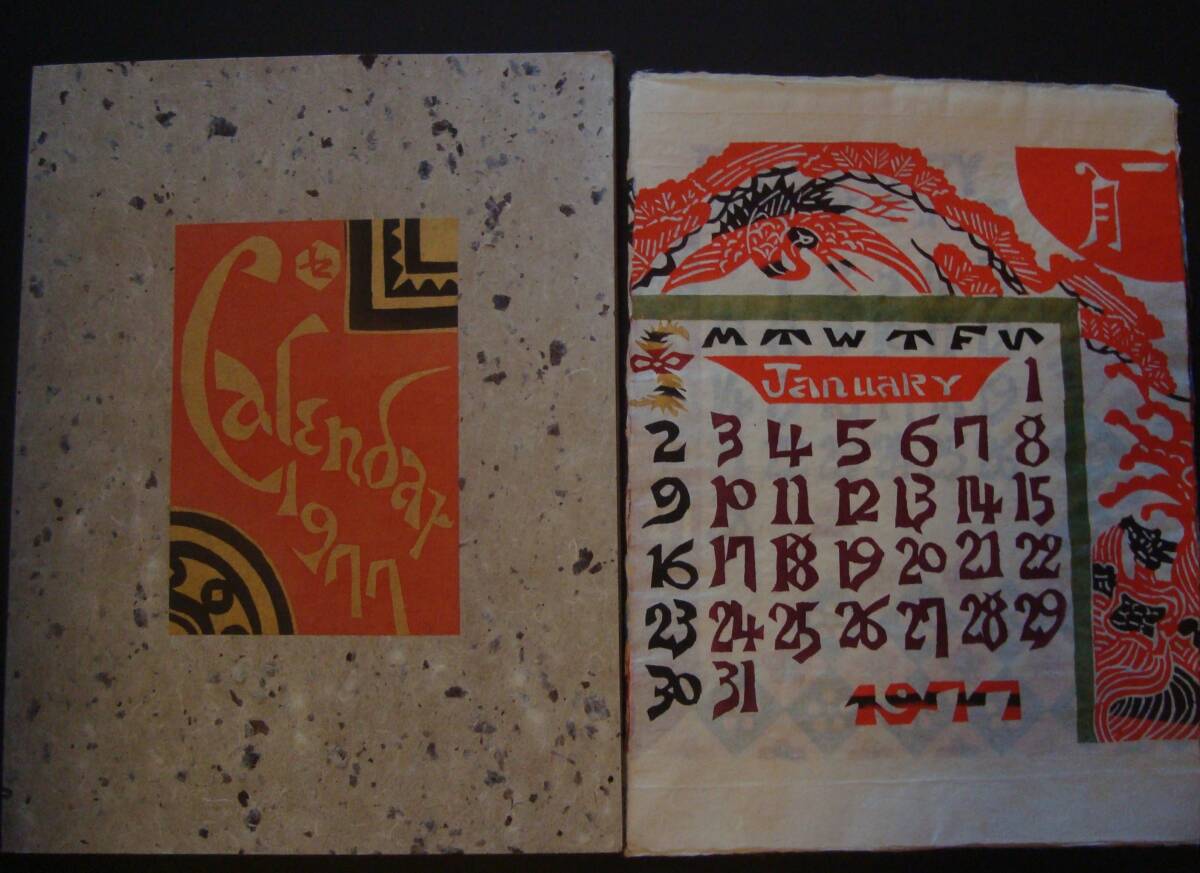 Calendar
1977
一月
M T W T F S
January
1
2 3 4 5 6 7 8
9 10 11 12 13 14 15
16 17 18 19 20 21 22
23 24 25 26 27 28 29
30 31
1977